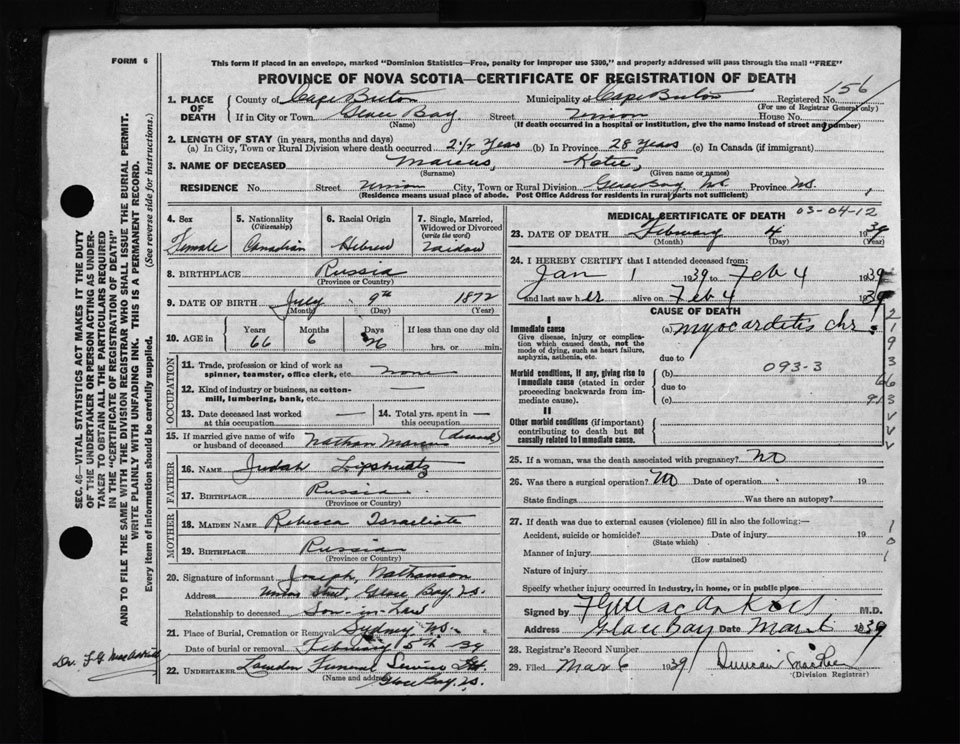 FORM 6
This form if placed in an envelope, marked "Dominion Statistics—Free, penalty for improper use $300," and properly addressed will pass through the mail "FREE"
PROVINCE OF NOVA SCOTIA—CERTIFICATE OF REGISTRATION OF DEATH
1. PLACE OF DEATH County of Cape Breton Municipality of Cape Breton Registered No. 156
(For use of Registrar General only)
If in City or Town Glace Bay Street Union House No.
(Name) (If death occurred in a hospital or institution, give the name instead of street and number)
2. LENGTH OF STAY (in years, months and days)
(a) In City, Town or Rural Division where death occurred 2 1/2 Years (b) In Province 28 Years (c) In Canada (if immigrant)
3. NAME OF DECEASED Marcus, Katie,
(Surname) (Given name or names)
RESIDENCE No. Street Union City, Town or Rural Division Glace Bay Province N.S. 1
(Residence means usual place of abode. Post Office Address for residents in rural parts not sufficient)
4. Sex Female
5. Nationality (Citizenship) Canadian
6. Racial Origin Hebrew
7. Single, Married, Widowed or Divorced (write the word) Widow
8. BIRTHPLACE Russia
(Province or Country)
9. DATE OF BIRTH July 9th 1872
(Month) (Day) (Year)
10. AGE in Years 66 Months 6 Days 26 If less than one day old hrs. or min.
OCCUPATION
11. Trade, profession or kind of work as spinner, teamster, office clerk, etc. None
12. Kind of industry or business, as cotton-mill, lumbering, bank, etc.
13. Date deceased last worked at this occupation
14. Total yrs. spent in this occupation
15. If married give name of wife or husband of deceased Nathan Marcus (deceased)
FATHER
16. NAME Judah Lipshultz
17. BIRTHPLACE Russia
MOTHER
18. MAIDEN NAME Rebecca Israelist
19. BIRTHPLACE Russian
(Province or Country)
20. Signature of informant Joseph Nathanson
Address Union Street, Glace Bay, N.S.
Relationship to deceased Son-in-Law
21. Place of Burial, Cremation or Removal Sydney N.S.
Date of burial or removal February 5th - 39
22. UNDERTAKER Funeral Service Ltd.
(Name and address) Glace Bay, N.S.
MEDICAL CERTIFICATE OF DEATH 03-04-12
23. DATE OF DEATH February 4 1939
(Month) (Day) (Year)
24. I HEREBY CERTIFY that I attended deceased from:
Jan 1 1939 to Feb 4 1939
and last saw her alive on Feb 4 1939
CAUSE OF DEATH
I
Immediate cause
Give disease, injury or complication which caused death, not the mode of dying, such as heart failure, asphyxia, asthenia, etc.
(a) myocarditis chr.
due to
Morbid conditions, if any, giving rise to immediate cause (stated in order proceeding backwards from immediate cause).
(b) 093-3
due to
(c) 91
II
Other morbid conditions (if important) contributing to death but not causally related to immediate cause.
25. If a woman, was the death associated with pregnancy? No
26. Was there a surgical operation? No Date of operation 19
State findings Was there an autopsy?
27. If death was due to external causes (violence) fill in also the following:—
Accident, suicide or homicide? Date of injury 19
(State which)
Manner of injury
(How sustained)
Nature of injury
Specify whether injury occurred in Industry, in home, or in public place
Signed by M.D.
Address Glace Bay Date Mar 6 1939
28. Registrar's Record Number
29. Filed Mar 6 1939 Duncan
(Division Registrar)
2 1 9 3 6 6 3 V V V
1 0 1
SEC. 46—VITAL STATISTICS ACT MAKES IT THE DUTY
OF THE UNDERTAKER OR PERSON ACTING AS UNDER-
TAKER TO OBTAIN ALL THE PARTICULARS REQUIRED
IN THE "CERTIFICATE OF REGISTRATION OF DEATH"
AND TO FILE THE SAME WITH THE DIVISION REGISTRAR WHO SHALL ISSUE THE BURIAL PERMIT.
WRITE PLAINLY WITH UNFADING INK. THIS IS A PERMANENT RECORD.
Every item of information should be carefully supplied. (See reverse side for instructions.)
Dr. F G